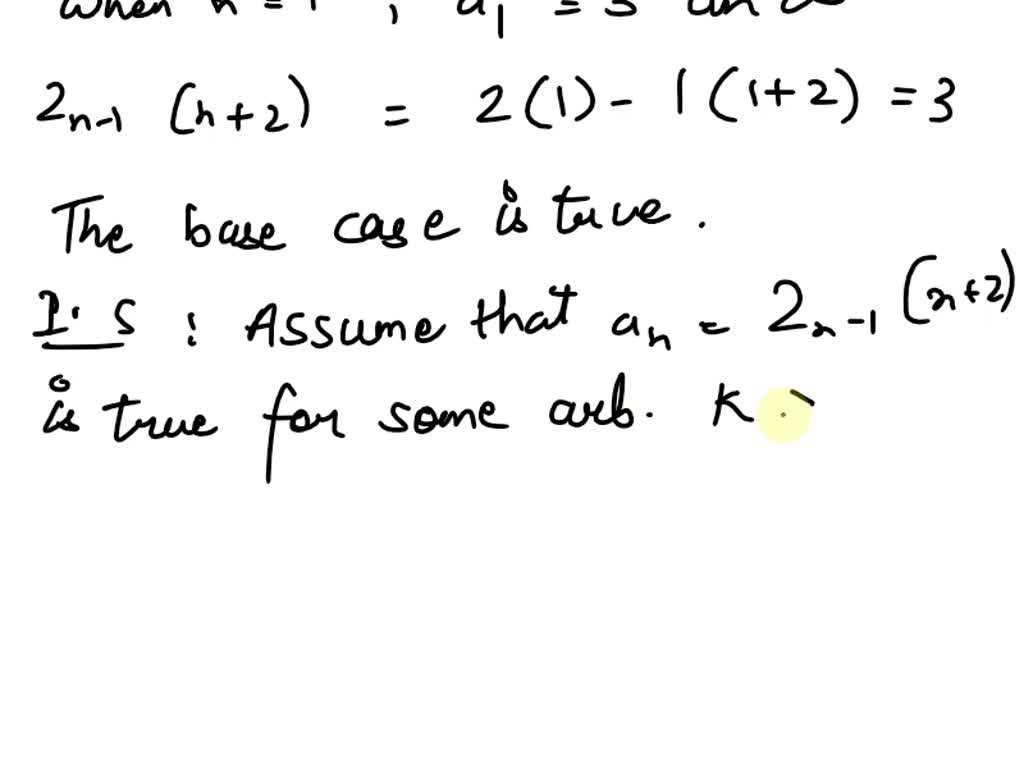 when n = 1 , a₁ = 3 and
2ₙ₋₁ (n+2) = 2(1) - 1(1+2) = 3
The base case is true.
I.S : Assume that aₙ = 2ₙ₋₁ (n+2)
is true for some arb. K